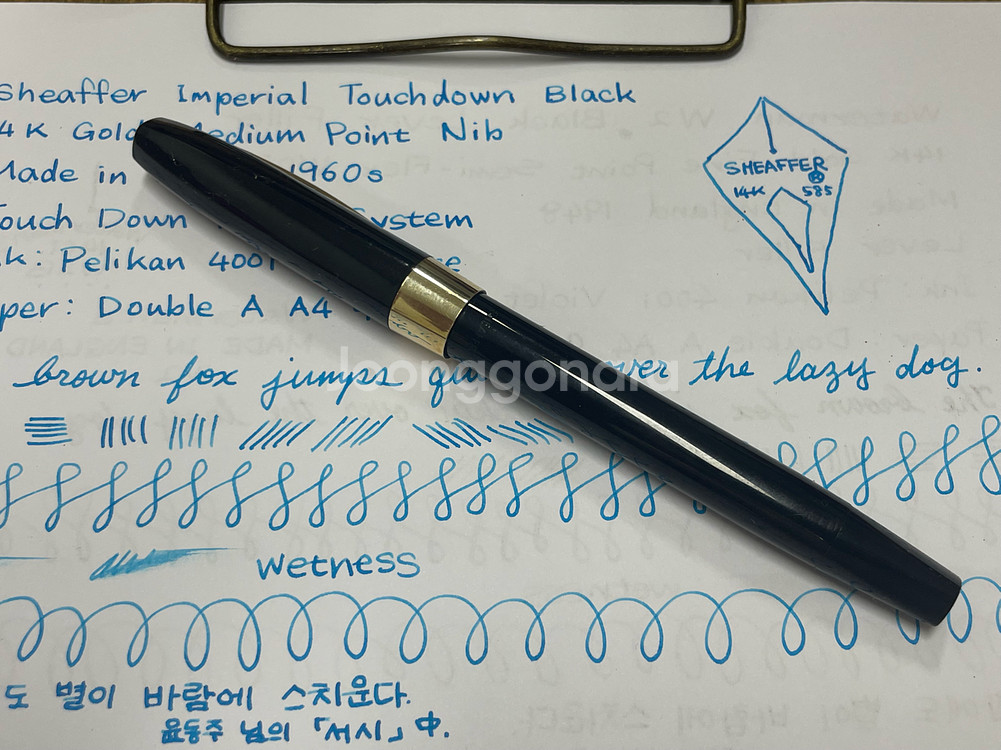 Sheaffer Imperial Touchdown Black
4K Gold Medium Point Nib
Made in 1960s
Touch Down System
k: Pelikan 4001
per: Double A A4
brown fox jumps over the lazy dog.
SHEAFFER
®
14K 585
joonggonara
wetness
도 별이 바람에 스치운다.
윤동주 님의 「서시」 中.